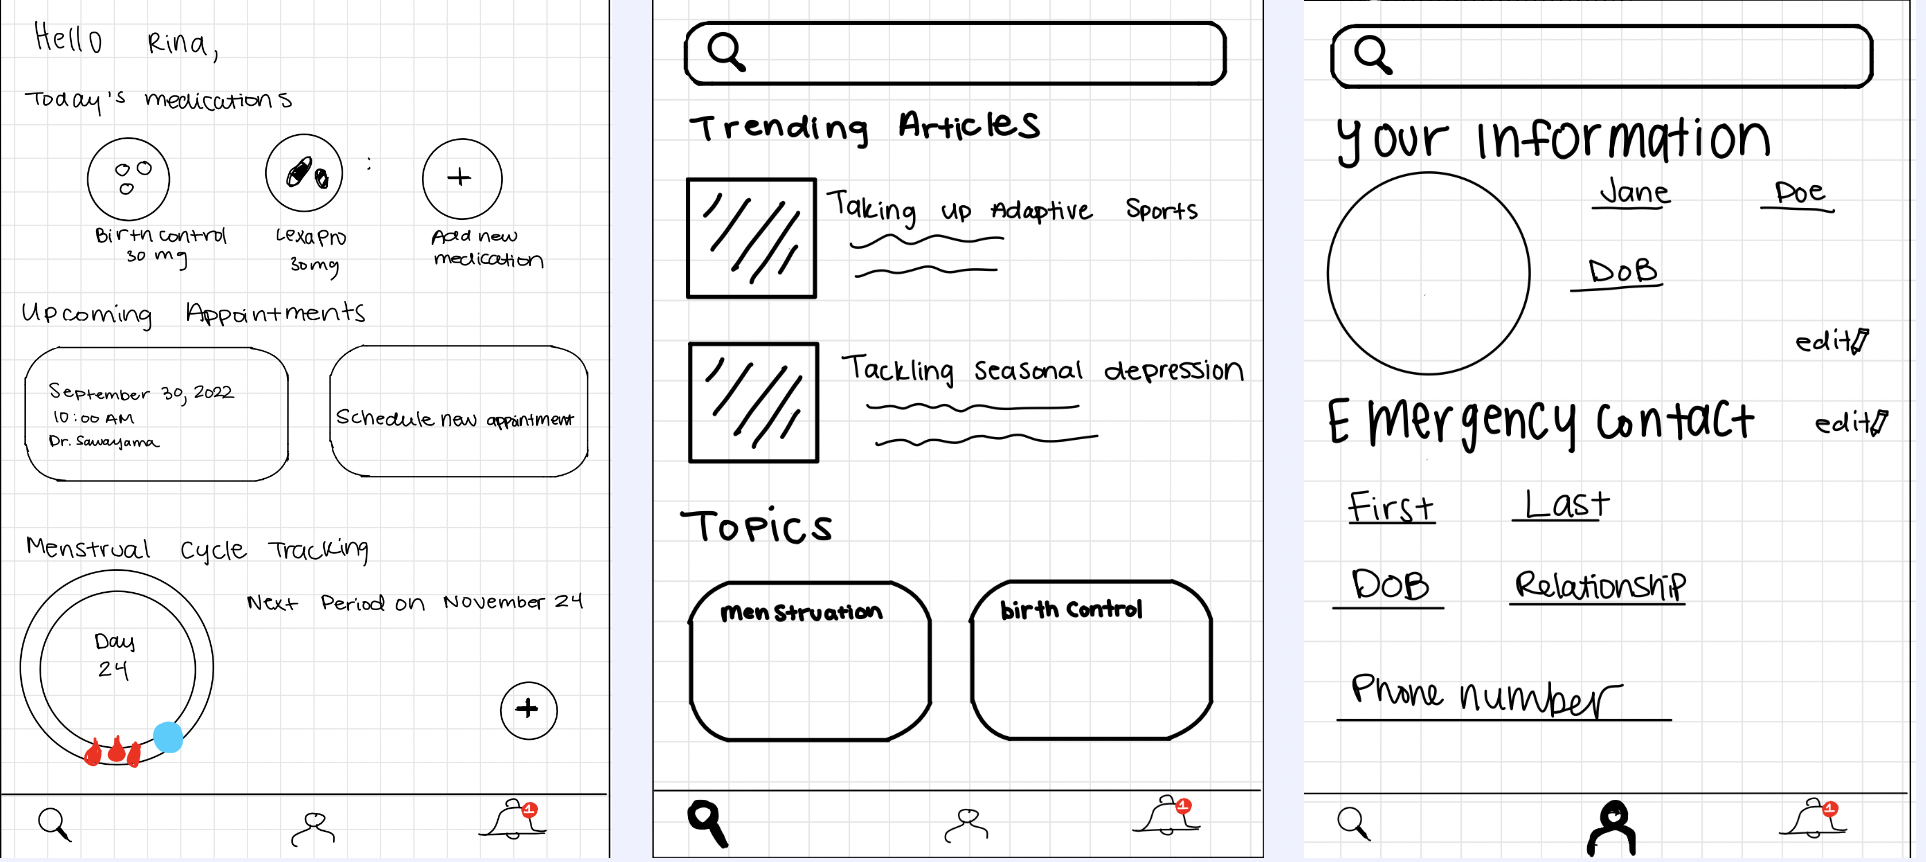 Hello Rina,
Today's medications
Birth control
30 mg
Lexapro
30mg
Add new
medication
Upcoming Appointments
September 30, 2022
10:00 AM
Dr. Sawayama
Schedule new appointment
Menstrual Cycle Tracking
Next Period on November 24
Day
24
1
Trending Articles
Taking up Adaptive Sports
Tackling seasonal depression
Topics
menstruation
birth control
1
Your Information
Jane Doe
DoB
edit
Emergency contact
edit
First Last
DOB Relationship
Phone number
1